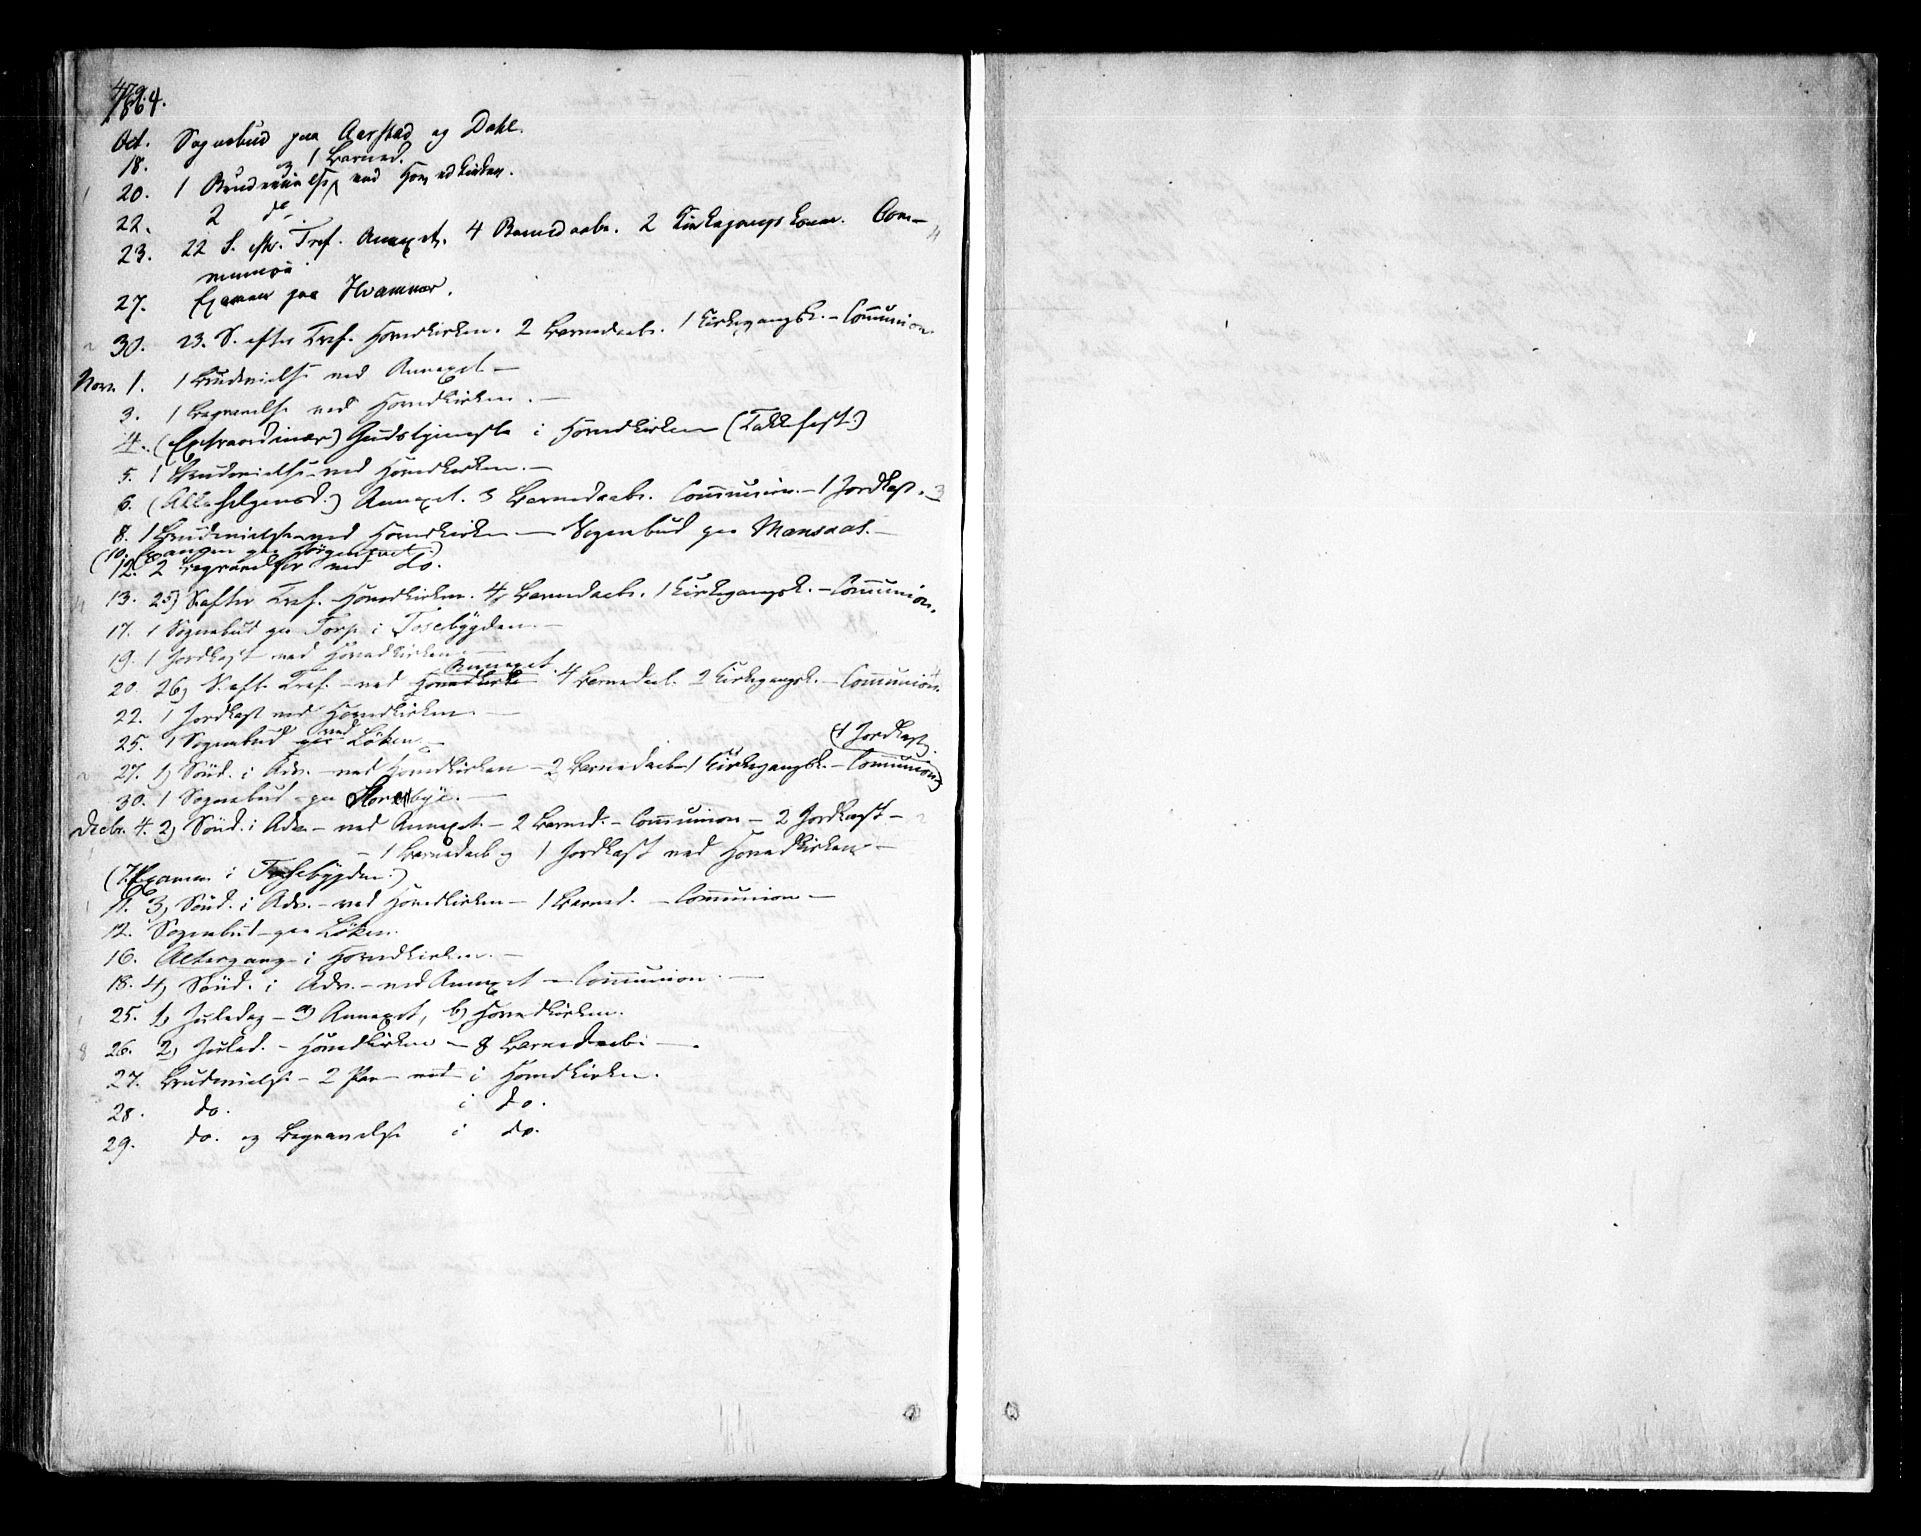 479.
1864.
Oct. 18. Sognebud paa Aarstad og Dahl.
1 Barned.
20. 1 Brudevielse ved Hovedkirken.
22. 2 do
23. 22 S. eftr. Tref. Annexet. 4 Barnedaabe. 2 Kirkegangskoner. Com-
munion
27. Examen paa Hvammer.
30. 23. S. efter Tref. Hovedkirken. 2 Barnedaab. 1 Kirkegangsk. – Communion.
Novr. 1. 1 Brudevielse ved Annexet –
3. 1 Begravelse ved Hovedkirken. –
4. (Extraordinær) Gudstjeneste i Hovedkirken (Takkefest.)
5. 1 Brudevielse ved Hovedkirken. –
6. (Allehelgensd.) Annexet. 3 Barnedaab. Communion. – 1 Jordkast. 3
8. 1 Brudevielse ved Hovedkirken – Sognebud paa Mansaas. –
(10. Examen paa
12. 2 Begravelser ved do.
13. 25) S. efter Tref. Hovedkirken. 4 Barnedaab. 1 Kirkegangsk. – Communion.
17. 1 Sognebud paa Torp i Tosebygden. –
19. 1 Jordkast ved Hovedkirken –
Annexet.
20. 26) S. eft. Tref. – ved Hovedkirke 4 Barnedaab. 2 Kirkegangsk. – Communion.
22. 1 Jordkast ved Hovedkirken. –
ved
25. 1 Sognebud paa Löken. –
(1 Jordkast.
27. 1) Sönd. i Adv. – ved Hovedkirken – 2 Barnedaab 1 Kirkegangsk. – Communion)
30. 1 Sognebud paa Storebye. –
Decbr. 4. 2) Sönd. i Adv. – ved Annexet – 2 Barned. – Communion – 2 Jordkast –
– 1 Barnedaab og 1 Jordkast ved Hovedkirken –
(7. Examen i Tosebygden.)
11. 3) Sönd. i Adv. – ved Hovedkirken – 1 Barned. – Communion –
12. Sognebud paa Löken.
16. Altergang i Hovedkirken. –
18. 4) Sönd. i Adv. – ved Annexet – Communion. –
25. 1) Juledag – a) Annexet, b) Hovedkirken.
8 26. 2) Juled. – Hovedkirken – 8 Barnedaab –.
27. Brudevielse – 2 Par – ved i Hovedkirken.
28. do. i do.
29. do. og Begravelse i do.